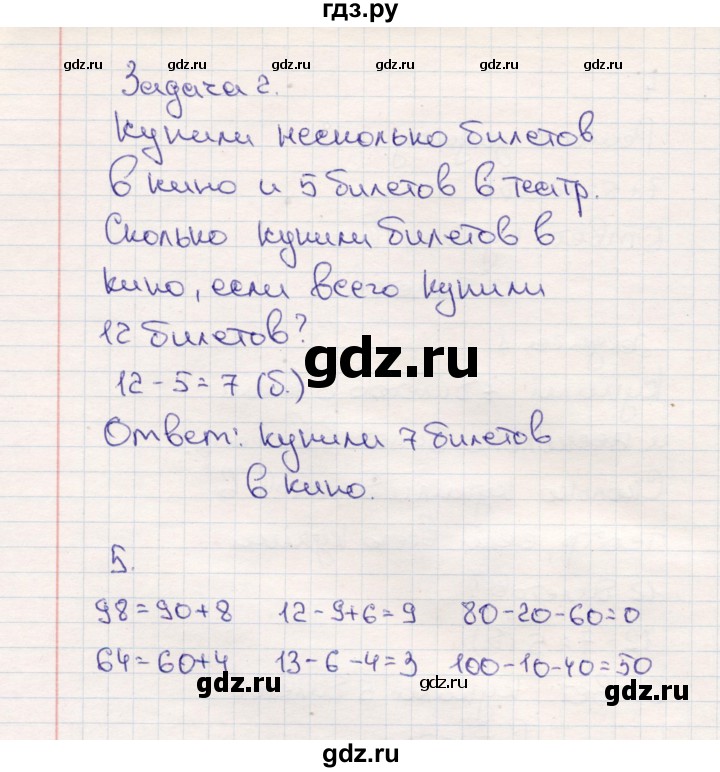 гдз.ру
gdz.ru gdz.ru gdz.ru gdz.ru gdz.ru
Задача 2.
Купили несколько билетов
в кино и 5 билетов в театр.
Сколько купили билетов в
кино, если всего купили
12 билетов?
gdz.ru
12 - 5 = 7 (б.)
Ответ: купили 7 билетов
в кино.
5.
98 = 90 + 8 12 - 9 + 6 = 9 80 - 20 - 60 = 0
64 = 60 + 4 13 - 6 - 4 = 3 100 - 10 - 40 = 50
gdz.ru gdz.ru gdz.ru
gdz.ru